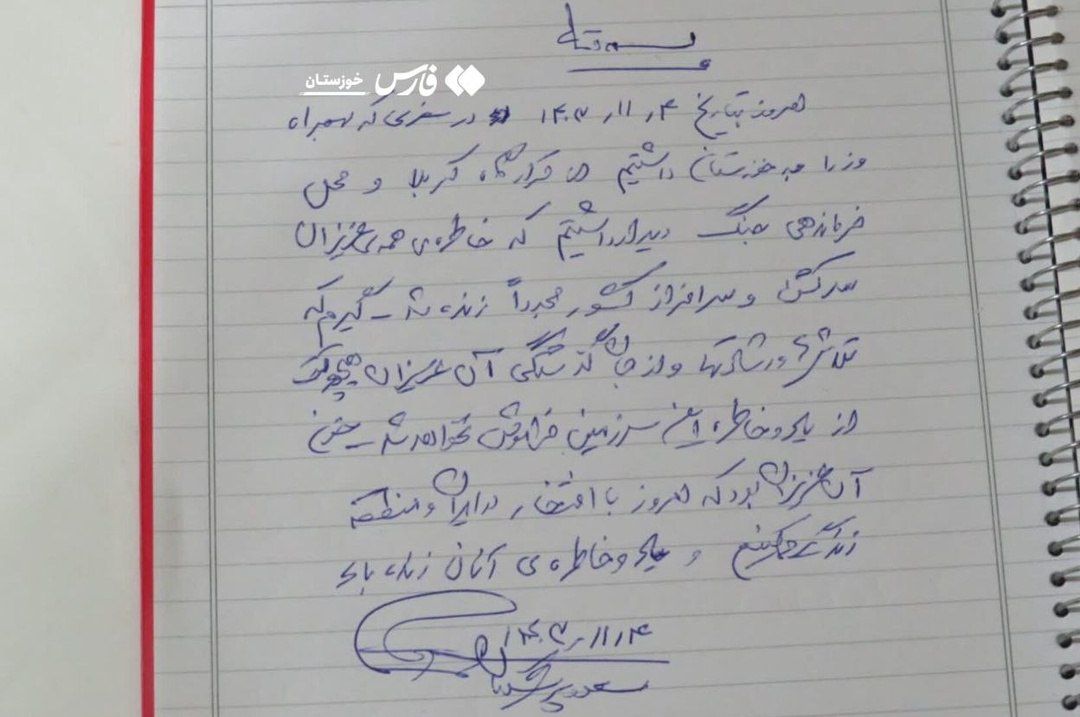 بسمه تعالی
فارس خوزستان
امروز بتاریخ ۱۴۰۳/۱۱/۴ در سفری که همراه
وزرا به خوزستان داشتیم از قرارگاه کربلا و محل
فرماندهی جنگ دیدار داشتیم که خاطره‌ی همه عزیزان
و سرافراز کشور مجدداً زنده شد
تلاش و از جان گذشتگی آن عزیزان هیچوقت
از یاد و خاطره این سرزمین فراموش نخواهد شد
آن عزیزان بود که امروز با افتخار در ایران و منطقه
زندگی می‌کنیم و یاد و خاطره‌ی آنان زنده باد
۱۴۰۳/۱۱/۴
مسعود پزشکیان